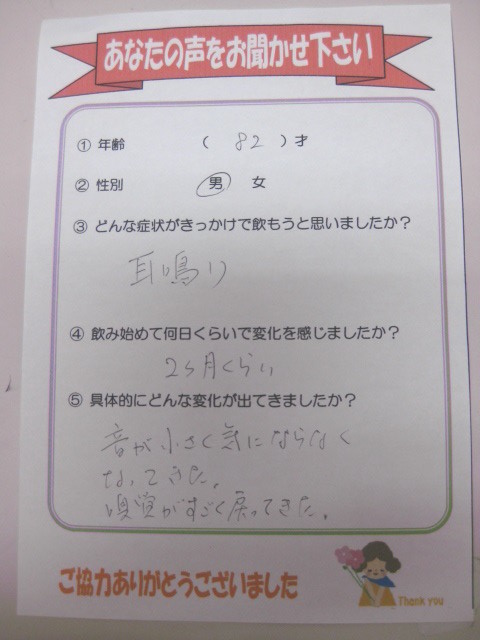 あなたの声をお聞かせ下さい
① 年齢 ( 82 ) 才
② 性別 男 女
③ どんな症状がきっかけで飲もうと思いましたか？
耳鳴り
④ 飲み始めて何日くらいで変化を感じましたか？
2ヶ月くらい
⑤ 具体的にどんな変化が出てきましたか？
音が小さく気にならなく
なってきた。
嗅覚がすごく戻ってきた。
ご協力ありがとうございました
Thank you